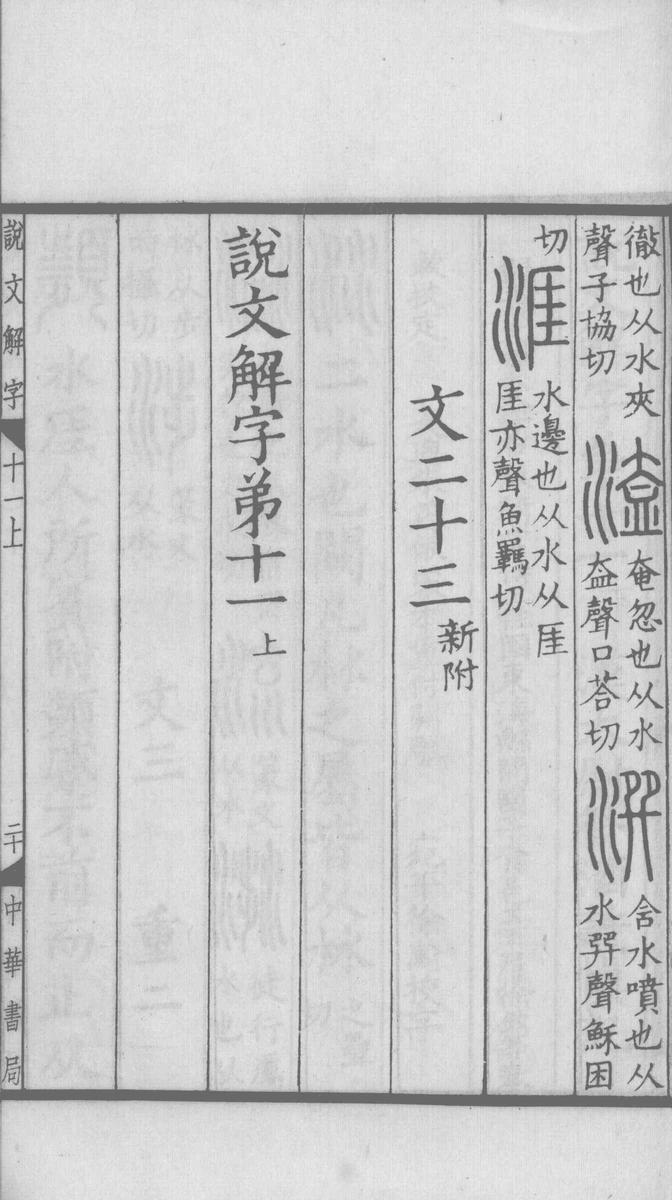 徹也从水夾
聲子協切
溘
奄忽也从水
盇聲口荅切
潠
含水噴也从
水巺聲穌困
切
涯
水邊也从水从厓
厓亦聲魚羈切
文二十三 新附
說文解字弟十一 上
說文解字 十一上 二十 中華書局